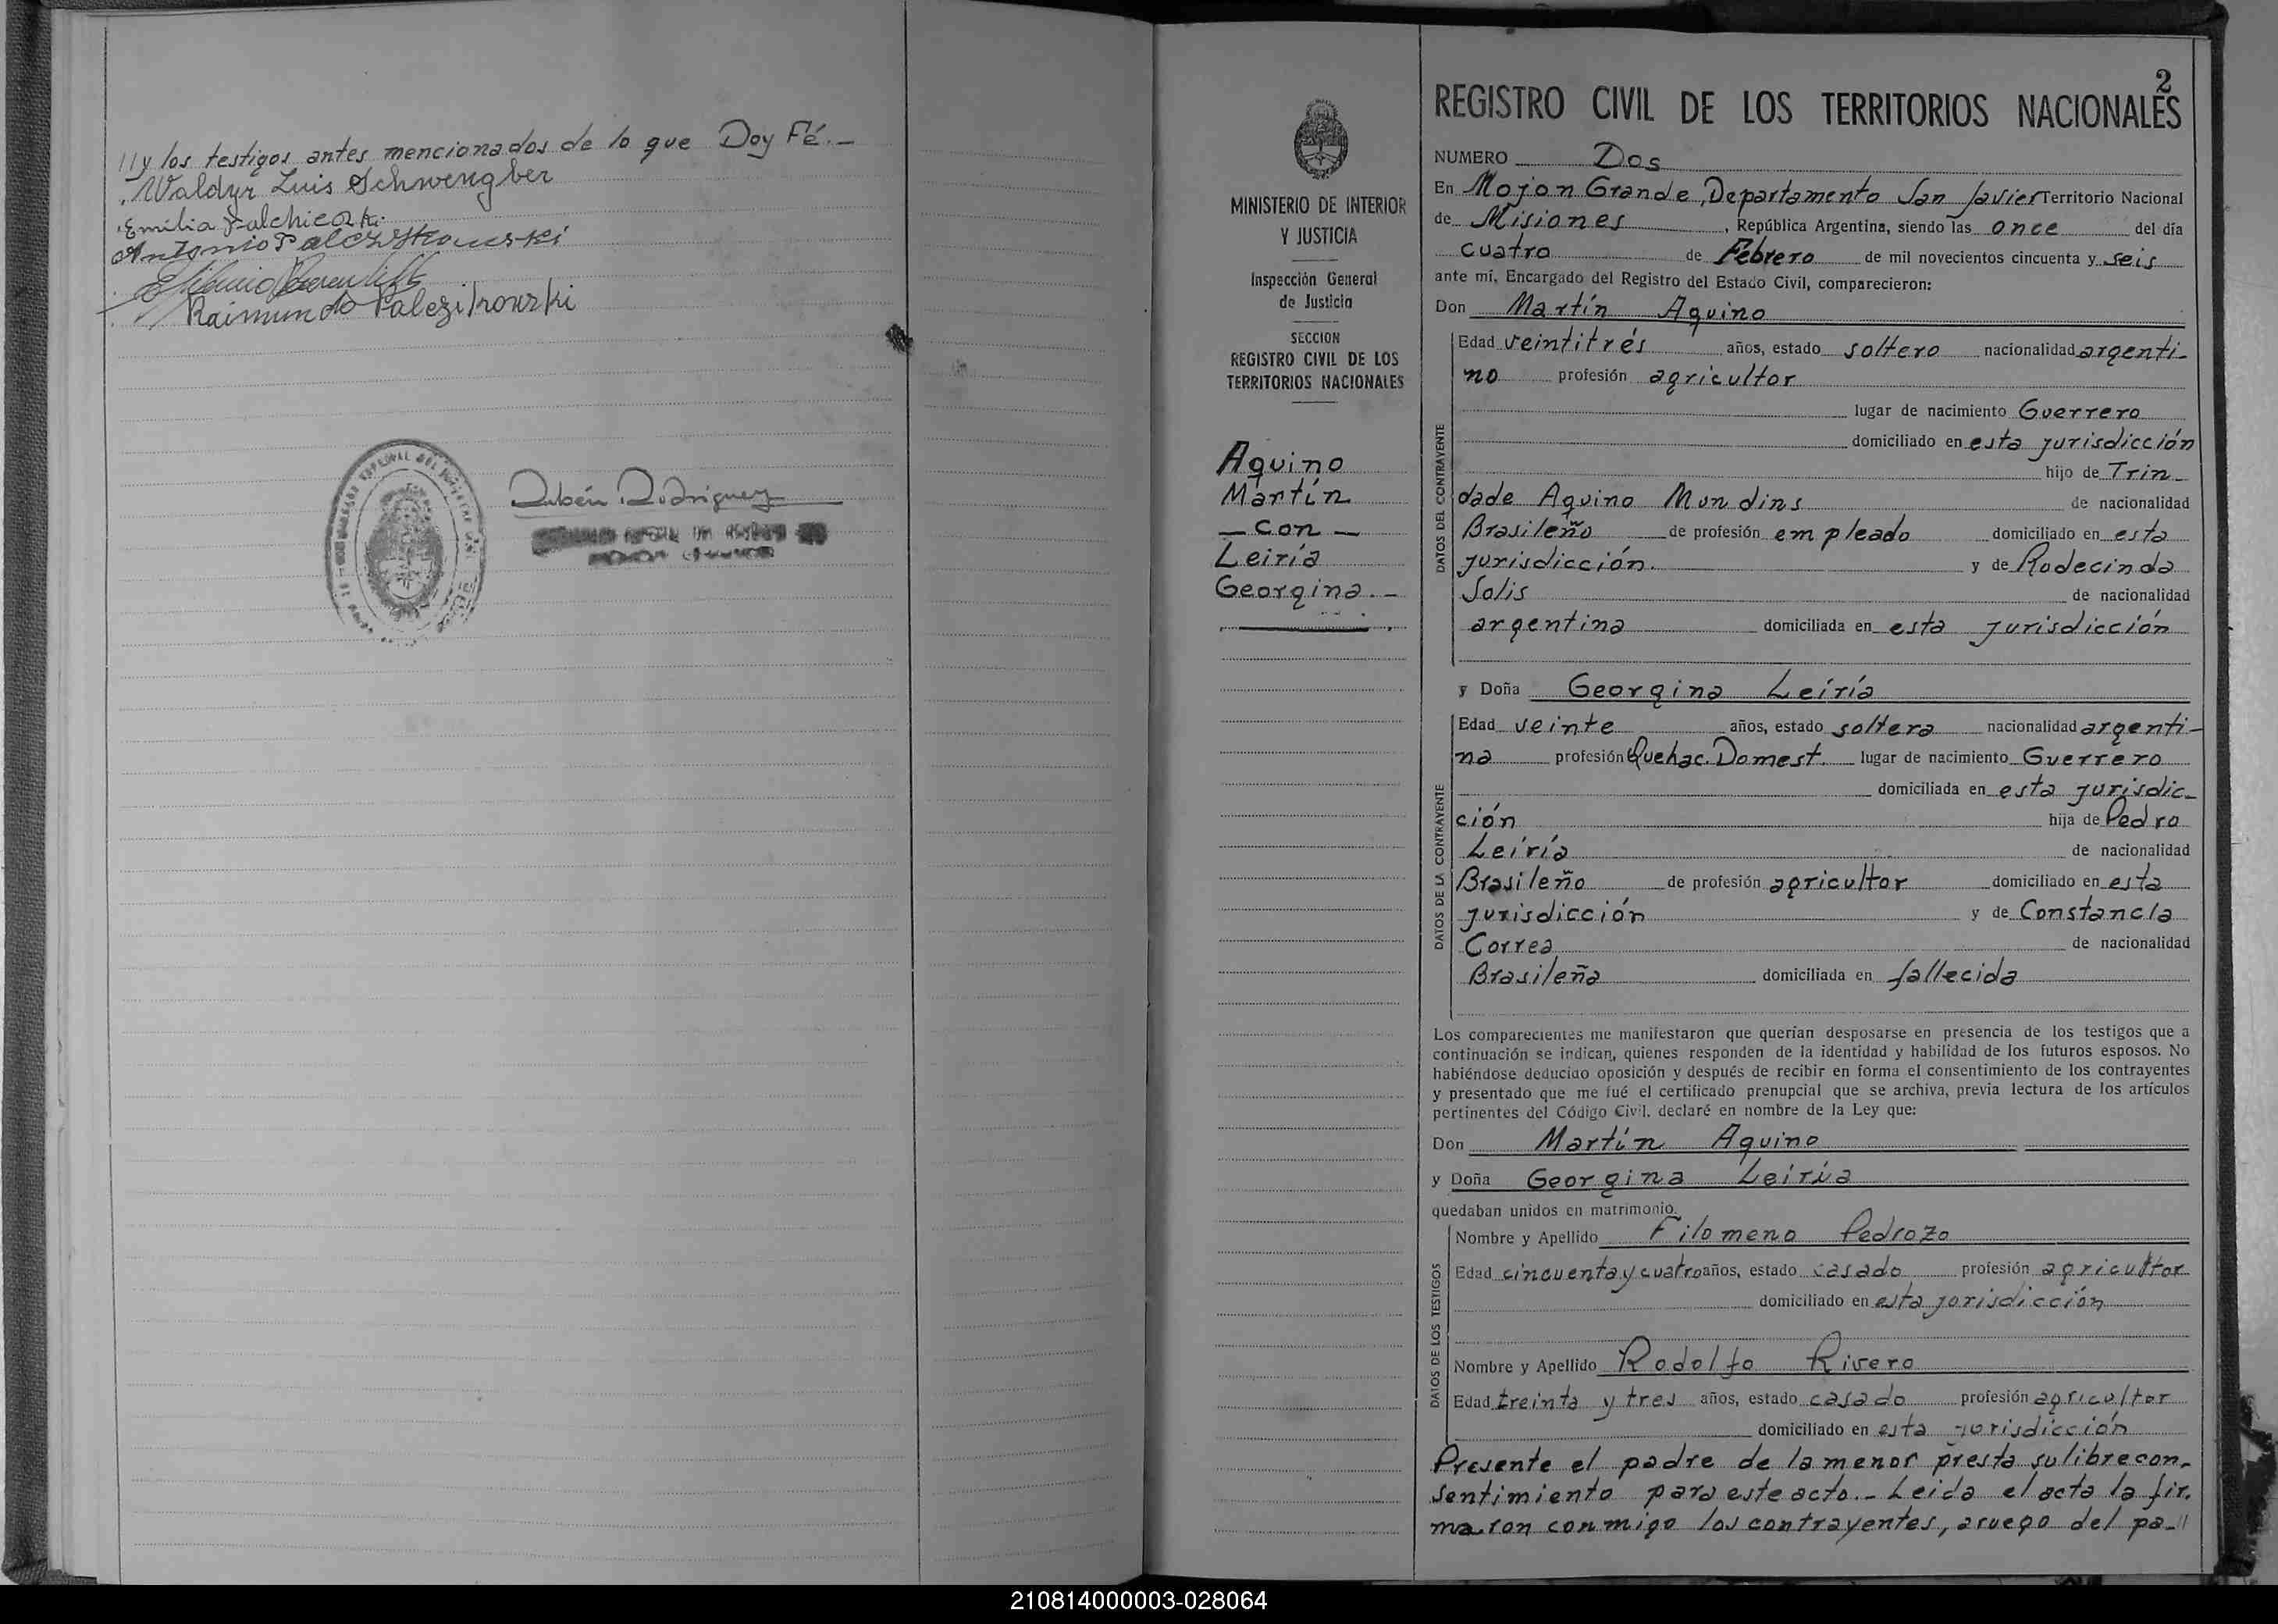 //y los testigos antes mencionados de lo que Doy Fé.-
Waldyr Luis Schwengber
Emilia Palchicoski
Antonio Palczikowski
Raimundo Palczikowski
Rubén Rodriguez
MINISTERIO DE INTERIOR
Y JUSTICIA
Inspección General
de Justicia
SECCION
REGISTRO CIVIL DE LOS
TERRITORIOS NACIONALES
Aquino
Martín
— con —
Leiría
Georgina.-
2
REGISTRO CIVIL DE LOS TERRITORIOS NACIONALES
NUMERO Dos
En Mojon Grande, Departamento San Javier Territorio Nacional
de Misiones, República Argentina, siendo las once del día
cuatro de Febrero de mil novecientos cincuenta y seis
ante mí, Encargado del Registro del Estado Civil, comparecieron:
Don Martín Aquino
DATOS DEL CONTRAYENTE
Edad veintitrés años, estado soltero nacionalidad argenti-
no profesión agricultor
lugar de nacimiento Guerrero
domiciliado en esta jurisdicción
hijo de Trin-
dade Aquino Mundins de nacionalidad
Brasileño de profesión empleado domiciliado en esta
jurisdicción. y de Rodecinda
Solis de nacionalidad
argentina domiciliada en esta jurisdicción
y Doña Georgina Leiría
DATOS DE LA CONTRAYENTE
Edad veinte años, estado soltera nacionalidad argenti-
na profesión Quehac. Domest. lugar de nacimiento Guerrero
domiciliada en esta jurisdic-
ción hija de Pedro
Leiría de nacionalidad
Brasileño de profesión agricultor domiciliado en esta
jurisdicción y de Constancia
Correa de nacionalidad
Brasileña domiciliada en fallecida
Los comparecientes me manifestaron que querían desposarse en presencia de los testigos que a
continuación se indican, quienes responden de la identidad y habilidad de los futuros esposos. No
habiéndose deducido oposición y después de recibir en forma el consentimiento de los contrayentes
y presentado que me fué el certificado prenupcial que se archiva, previa lectura de los artículos
pertinentes del Código Civil, declaré en nombre de la Ley que:
Don Martín Aquino
y Doña Georgina Leiría
quedaban unidos en matrimonio.
DATOS DE LOS TESTIGOS
Nombre y Apellido Filomeno Pedrozo
Edad cincuenta y cuatro años, estado casado profesión agricultor
domiciliado en esta jurisdicción
Nombre y Apellido Rodolfo Rivero
Edad treinta y tres años, estado casado profesión agricultor
domiciliado en esta jurisdicción
Presente el padre de la menor presta su libre con-
sentimiento para este acto.- Leida el acta la fir-
maron conmigo los contrayentes, a ruego del pa-//
210814000003-028064